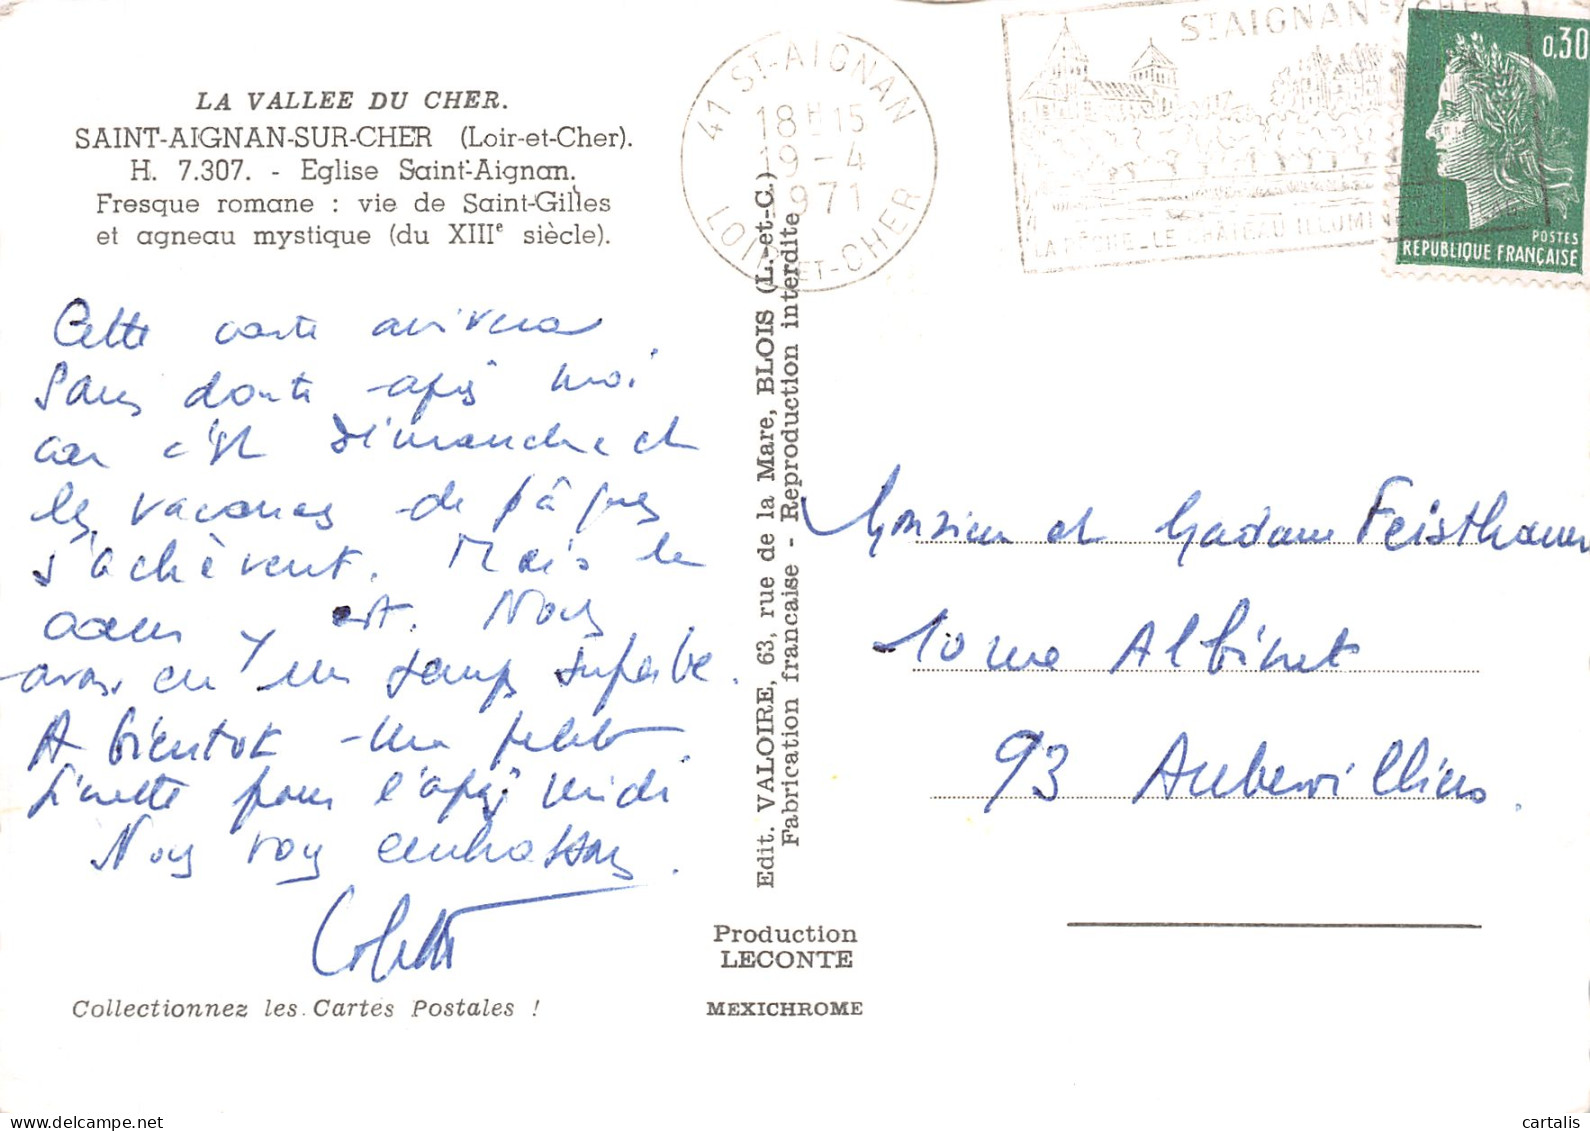 LA VALLEE DU CHER.
SAINT-AIGNAN-SUR-CHER (Loir-et-Cher).
H. 7.307. - Eglise Saint-Aignan.
Fresque romane : vie de Saint-Gilles
et agneau mystique (du XIIIe siècle).
Cette carte arrivera
sans doute après moi
car c'est dimanche et
les vacances de pâques
s'achèvent. Mais le
coeur y est. Nous
avons eu un temps superbe.
A bientôt - une petite
pour l'après midi
Nous vous embrassons.
Colette
Collectionnez les Cartes Postales !
Edit. VALOIRE, 63, rue de la Mare, BLOIS (L.-et-C.)
Fabrication francaise - Reproduction interdite
Production
LECONTE
MEXICHROME
41 ST-AIGNAN
18H15
19-4
1971
LOIR-ET-CHER
ST AIGNAN S/CHER
LA PÊCHE_LE CHÂTEAU ILLUMINÉ
0,30
POSTES
REPUBLIQUE FRANÇAISE
Monsieur et Madame Feisthauer
10 rue Albinet
93 Aubervilliers.
cartalis
www.delcampe.net